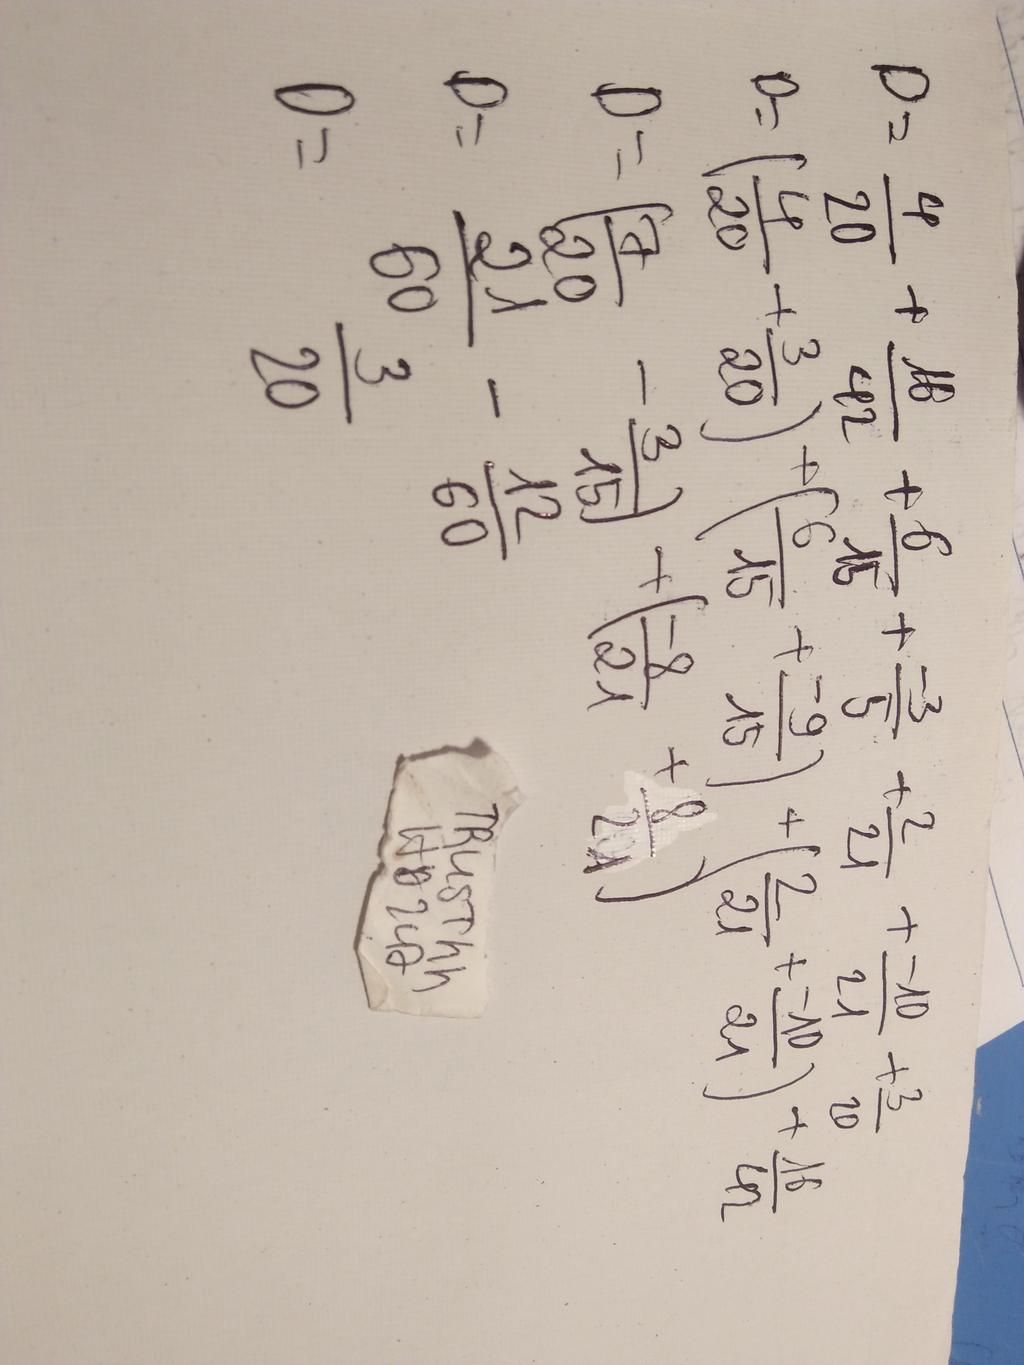 D = 4/20 + 16/42 + 6/15 + -3/5 + 2/21 + -10/21 + 3/20
D = (4/20 + 3/20) + (6/15 + -9/15) + (2/21 + -10/21) + 16/42
D = (7/20 - 3/15) + (-8/21 + 8/21)
D = 21/60 - 12/60
D = 3/20